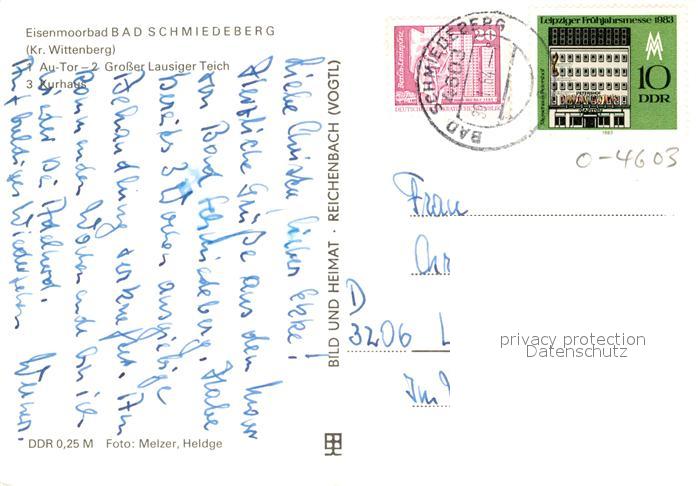 Eisenmoorbad BAD SCHMIEDEBERG
(Kr. Wittenberg)
1 Au-Tor – 2 Großer Lausiger Teich
3 Kurhaus
Liebe Christa, lieber Ekke!
Herzliche Grüße aus dem Moor
von Bad Schmiedeberg. Habe
bereits 3 Wochen ausgiebige
Behandlung
Wochenende bin ich
wieder bei Adelheid.
Auf baldiges Wiedersehen
Werner.
DDR 0,25 M Foto: Melzer, Heldge
BILD UND HEIMAT · REICHENBACH (VOGTL)
BAD SCHMIEDEBERG
4603
20
Leipziger Frühjahrsmesse 1983
10
DDR
1983
0-4603
Frau
Chr
D
3206 L
Im
privacy protection
Datenschutz